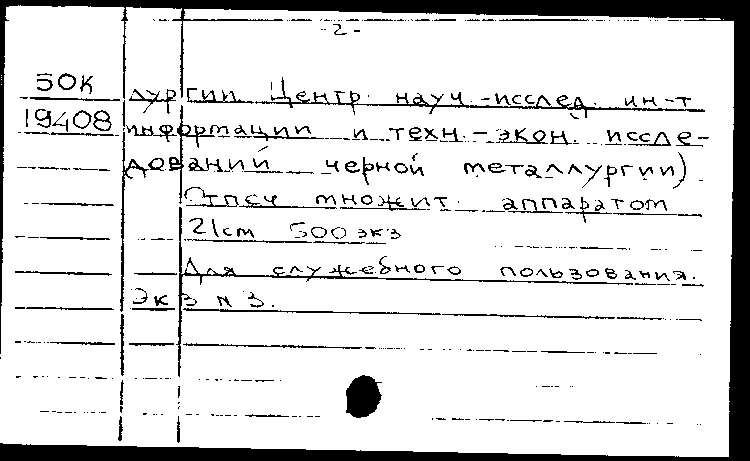 -2-
50к лургии. Центр. науч.-исслед. ин-т
19408 информации и техн.-экон. иссле-
дований черной металлургии).
Отпеч множит. аппаратом
21см 500 экз
Для служебного пользования.
Экз N 3.